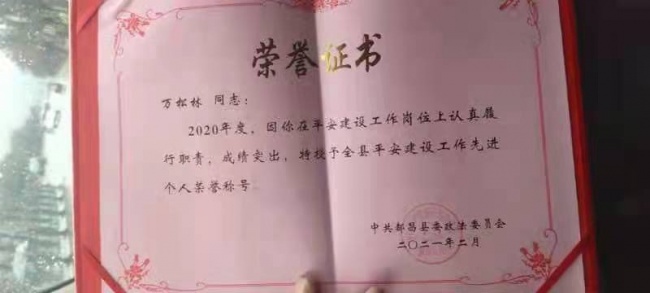 荣誉证书
万松林 同志：
2020年度，因你在平安建设工作岗位上认真履
行职责，成绩突出，特授予全县平安建设工作先进
个人荣誉称号
中共都昌县委政法委员会
二〇二一年二月